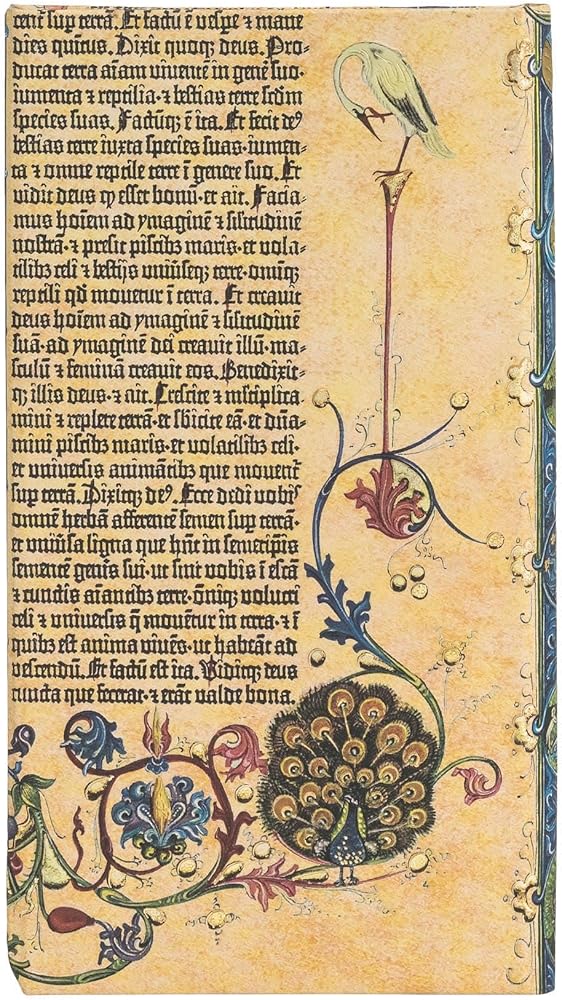 rent sup terrā. Et factū ē vespe ⁊ mane
dies quītus. Dixit quoqꝫ deus. Pro⸗
ducat terra aīam viventē in genē suo⸱
iumenta ⁊ reptilia⸱ ⁊ bestias terre scdm
species suas. Factūqꝫ ē ita. Et fecit deꝰ
bestias terre iuxta species suas⸱ iumen⸗
ta ⁊ omne reptile terre ī genere suo. Et
vidit deus ꝙ esset bonū⸱ et ait. Facia⸗
mus hoīem ad ymaginē ⁊ silitudinē
nostrā⸱ ⁊ presit piscibꝫ maris⸱ et vola⸗
tilibꝫ celi ⁊ bestijs universeqꝫ terre⸱ omīqꝫ
reptili qđ movetur ī terra. Et creavit
deus hoīem ad ymaginē ⁊ silitudinē
suā⸱ ad ymaginē dei creavit illū⸱ ma⸗
sculū ⁊ feminā creavit eos. Benedixit⸗
qꝫ illis deus⸱ ⁊ ait. Crescite ⁊ mltiplica⸗
mini ⁊ replete terrā⸱ et sbicite eā⸱ et dnā⸗
mini piscibꝫ maris⸱ et volatilibꝫ celi⸱
et universis animātibꝫ que movent̄
sup terrā. Dixitqꝫ deꝰ. Ecce dedi vobis
omnē herbā afferentē semen sup terrā⸱
et univsa ligna que hn̄t in semetipis
sementē genis sui⸱ ut sint vobis ī escā
⁊ cunctis aīantibꝫ terre⸱ ōniqꝫ volucri
celi ⁊ universis q̄ movētur in terra⸱ ⁊ ī
quibꝫ est anima vivēs⸱ ut habeāt ad
vescendū. Et factū est ita. Viditqꝫ deus
cuncta que fecerat⸱ ⁊ erāt valde bona.